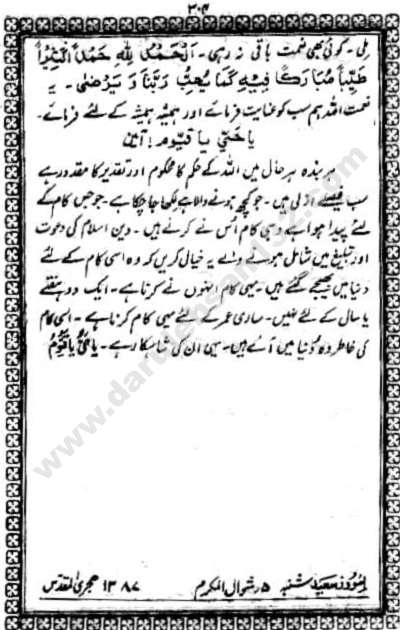 ۳۰۴
ملی ۔ کوئی بھی نعمت باقی نہ رہی ۔ اَلْحَمْدُ لِلّٰہِ حَمْدًا کَثِیْرًا
طَیِّبًا مُبَارَکًا فِیْہِ کَمَا یُحِبُّ رَبُّنَا وَ یَرْضٰی ۔ یہ
نعمت اللہ ہم سب کو عنایت فرمائے اور ہمیشہ ہمیشہ کے لئے فرمائے ۔
یا حَیُّ یا قیّوم ! آمین
ہر بندہ ہر حال میں اللہ کے حکم کا محکوم اور تقدیر کا مقدور ہے
سب فیصلے ازلی ہیں ۔ جو کچھ ہونے والا ہے لکھا جا چکا ہے ۔ جو جس کام کے
لئے پیدا ہوا ہے وہی کام اُس نے کرنے ہیں ۔ دین اسلام کی دعوت
اور تبلیغ میں شامل ہونے والے یہ خیال کریں کہ وہ اسی کام کے لئے
دُنیا میں بھیجے گئے ہیں ۔ یہی کام انہوں نے کرنا ہے ۔ ایک دو ہفتے
یا سال کے لئے نہیں ۔ ساری عمر کے لئے یہی کام کرنا ہے ۔ اسی کام
کی خاطر وہ دُنیا میں آئے ہیں ۔ یہی ان کی شاہکار ہے ۔ یَا حَیُّ یَا قَیُّوْمُ
بروز سعید شنبہ ۵ ر شوال المکرم ۱۳۸۷ ہجری المقدس